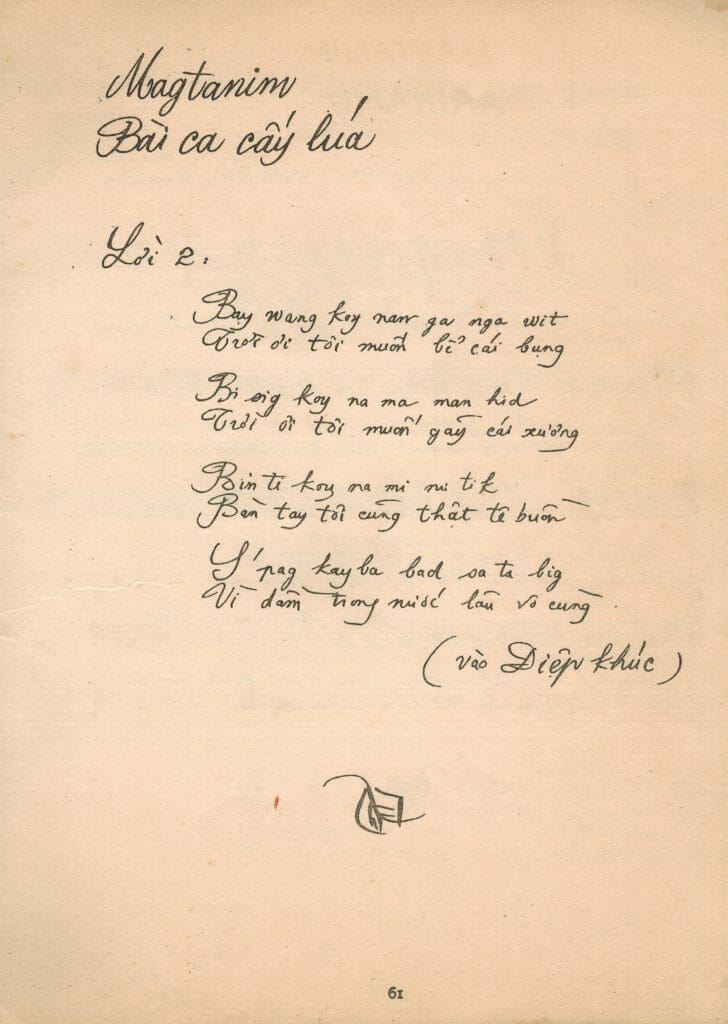 Magtanim
Bài ca cấy lúa
Lời 2:
Bay wang koy nan ga nga wit
Trời ơi tôi muốn bể cái bụng
Bi sig koy na ma man hid
Trời ơi tôi muốn gãy cái xương
Bin ti koy na mi ni tik
Bàn tay tôi cũng thật tê buồn
S' pag kay ba bad sa ta big
Vì dầm trong nước lâu vô cùng.
(vào Điệp khúc)
61